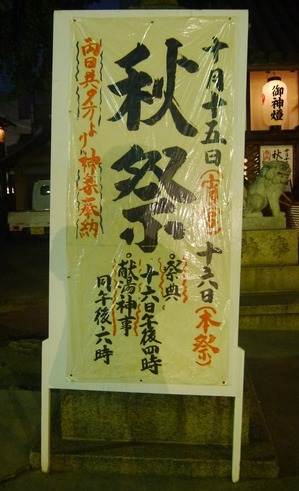 十月十五日(宵宮)十六日(本祭)
秋祭
。祭典
十六日午後四時
。献湯神事
同午後六時
両日共夕方より神楽奉納
御神燈